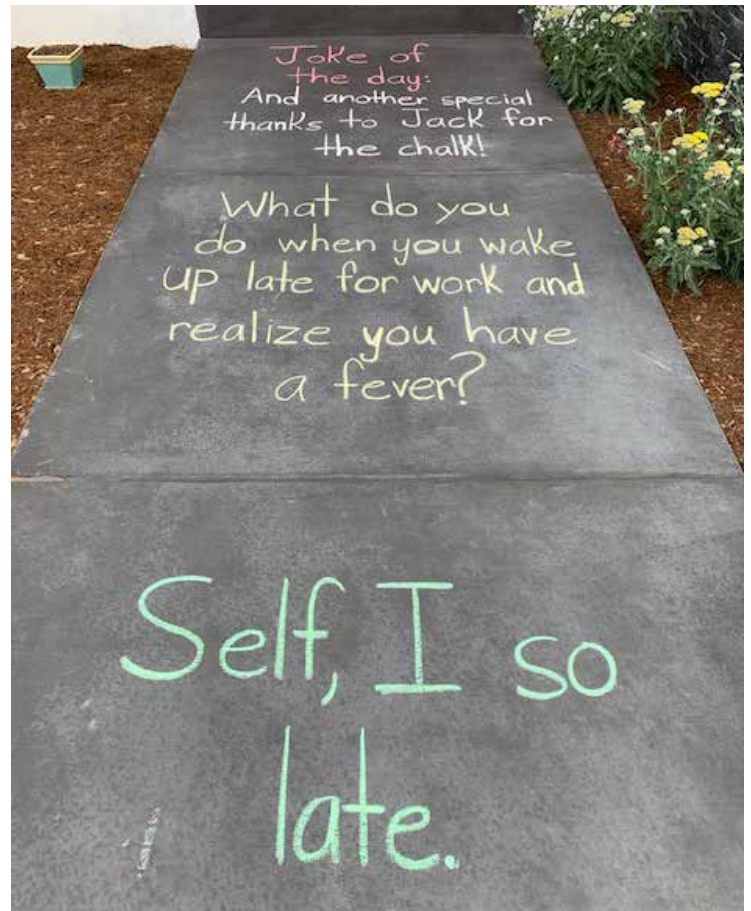 Joke of
the day:
And another special
thanks to Jack for
the chalk!
What do you
do when you wake
up late for work and
realize you have
a fever?
Self, I so
late.